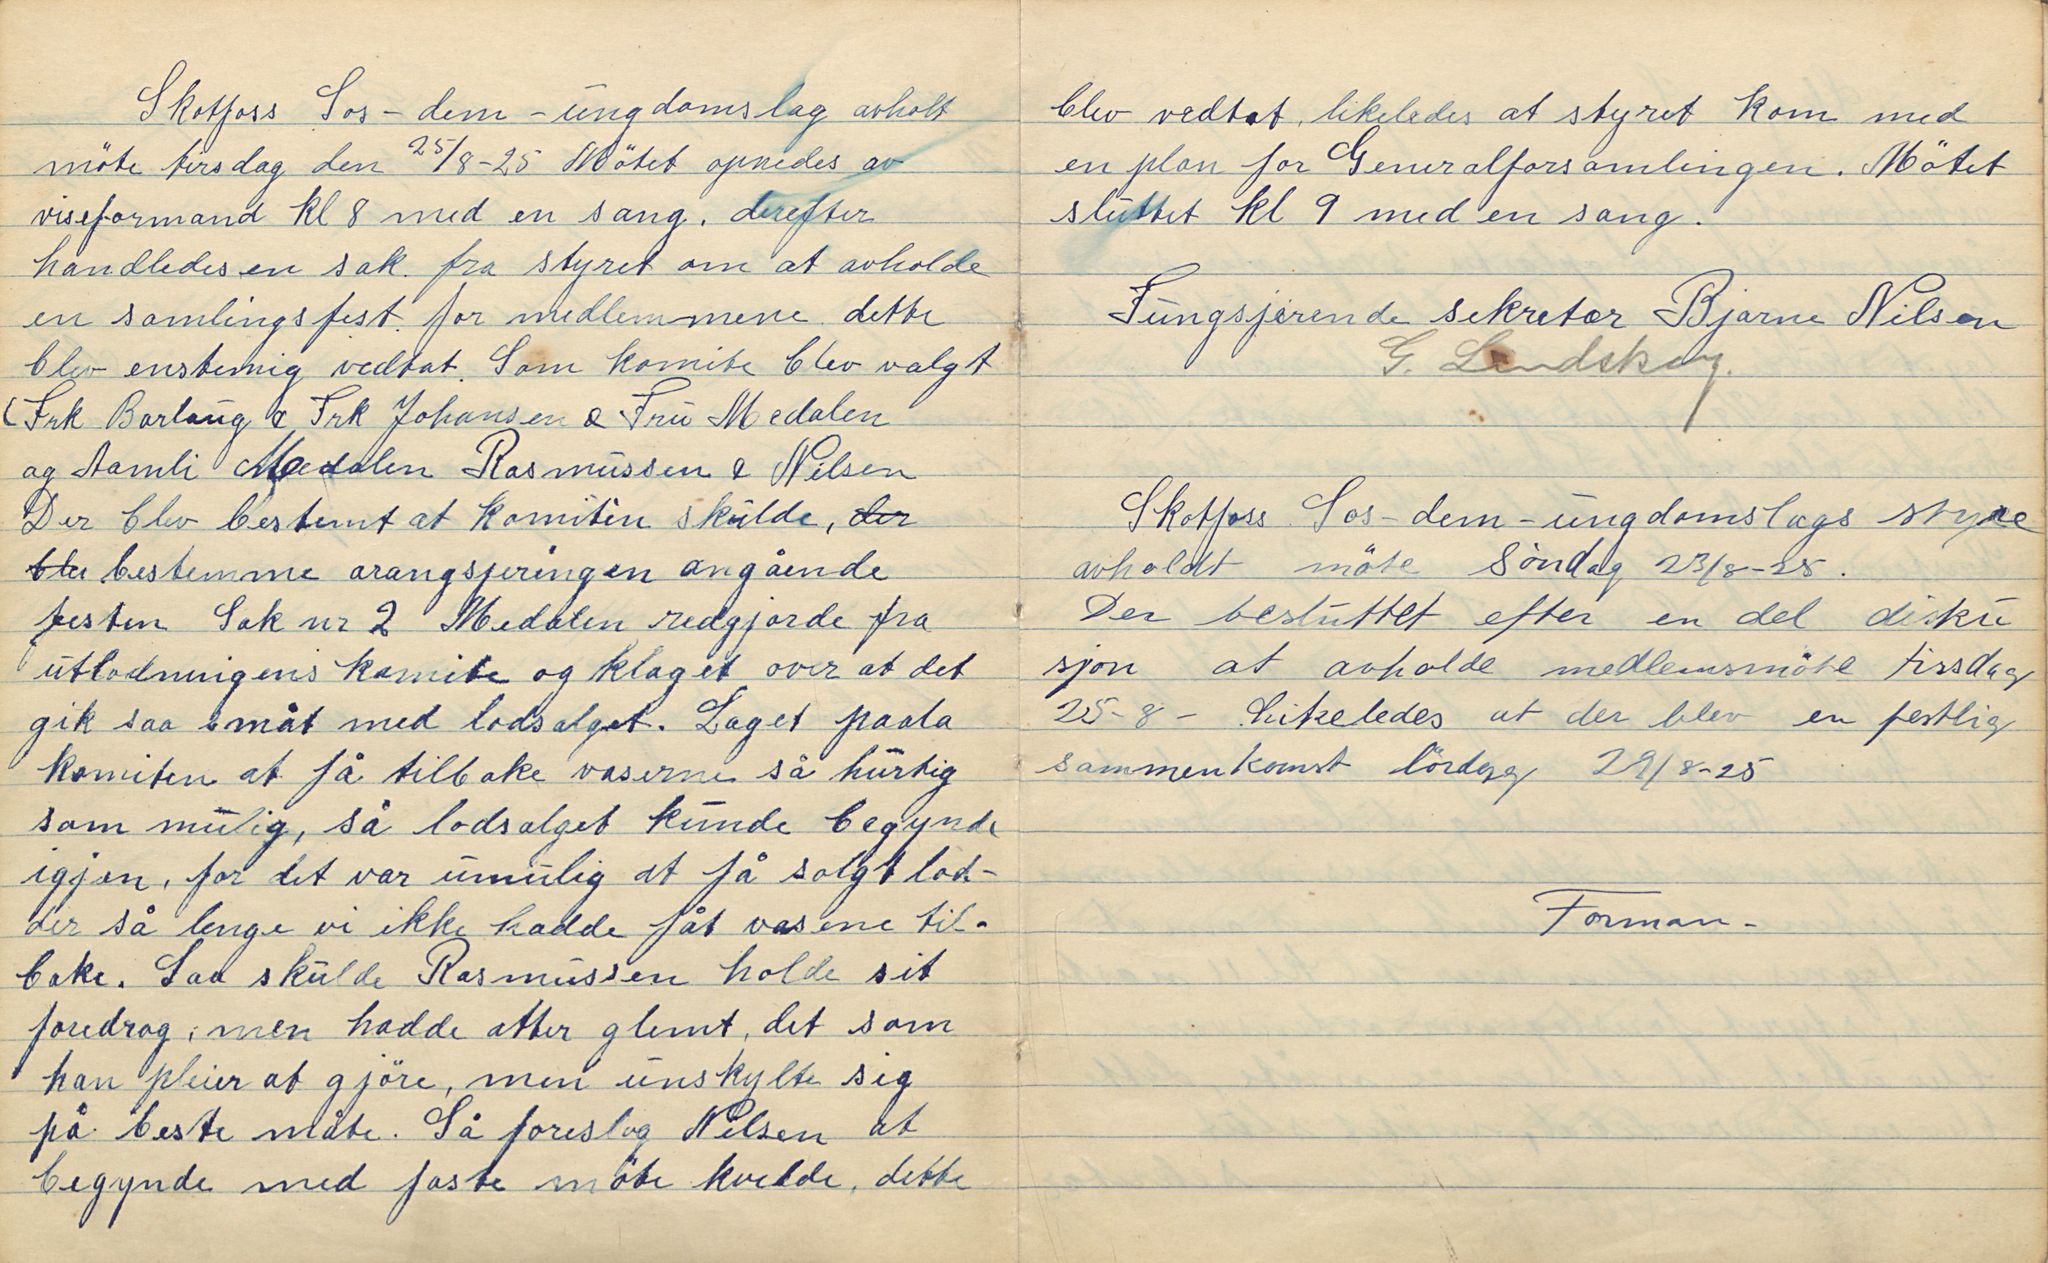 Skotfoss Sos-dem-ungdomslag avholt
möte tirsdag den 25/8-25 Mötet opnedes av
viseformand kl 8 med en sang. derefter
handledes en sak fra styret om at avholde
en samlingsfest for medlemmene dette
blev enstemig vedtat. Som komite blev valgt
(Frk Barlaug & Frk Johansen & Fru Medalen
og Aamli Medalen Rasmussen & Nilsen
Der blev bestemt at komitèn skulde, der
ble bestemme arangsjeringen angående
festen Sak nr 2 Medalen redgjorde fra
utlodningens komite og klaget over at det
gik saa småt med lodsalget. Laget paala
komiten at få tilbake vaserne så hurtig
som mulig, så lodsalget kunde begynde
igjen, for det var umulig at få solgt lod-
der så lenge vi ikke hadde fåt vasene til-
bake. Saa skulde Rasmussen holde sit
foredrag, men hadde atter glemt, det som
han pleier at gjöre, men unskylte sig
på beste måte. Så foreslog Nilsen at
begynde med faste möte kvelde, dette
blev vedtat, likeledes at styret kom med
en plan for Generalforsamlingen. Mötet
sluttet kl 9 med en sang.
Fungsjerende sekretær Bjarne Nilsen
G. Lendskog.
Skotfoss Sos-dem-ungdomslags styre
avholdt möte Söndag 23/8-25.
Der besluttet efter en del disku
sjon at avholde medlemsmöte tirsdag
25-8- Likeledes at der blev en festlig
sammenkomst lördag 29/8-25
Forman-